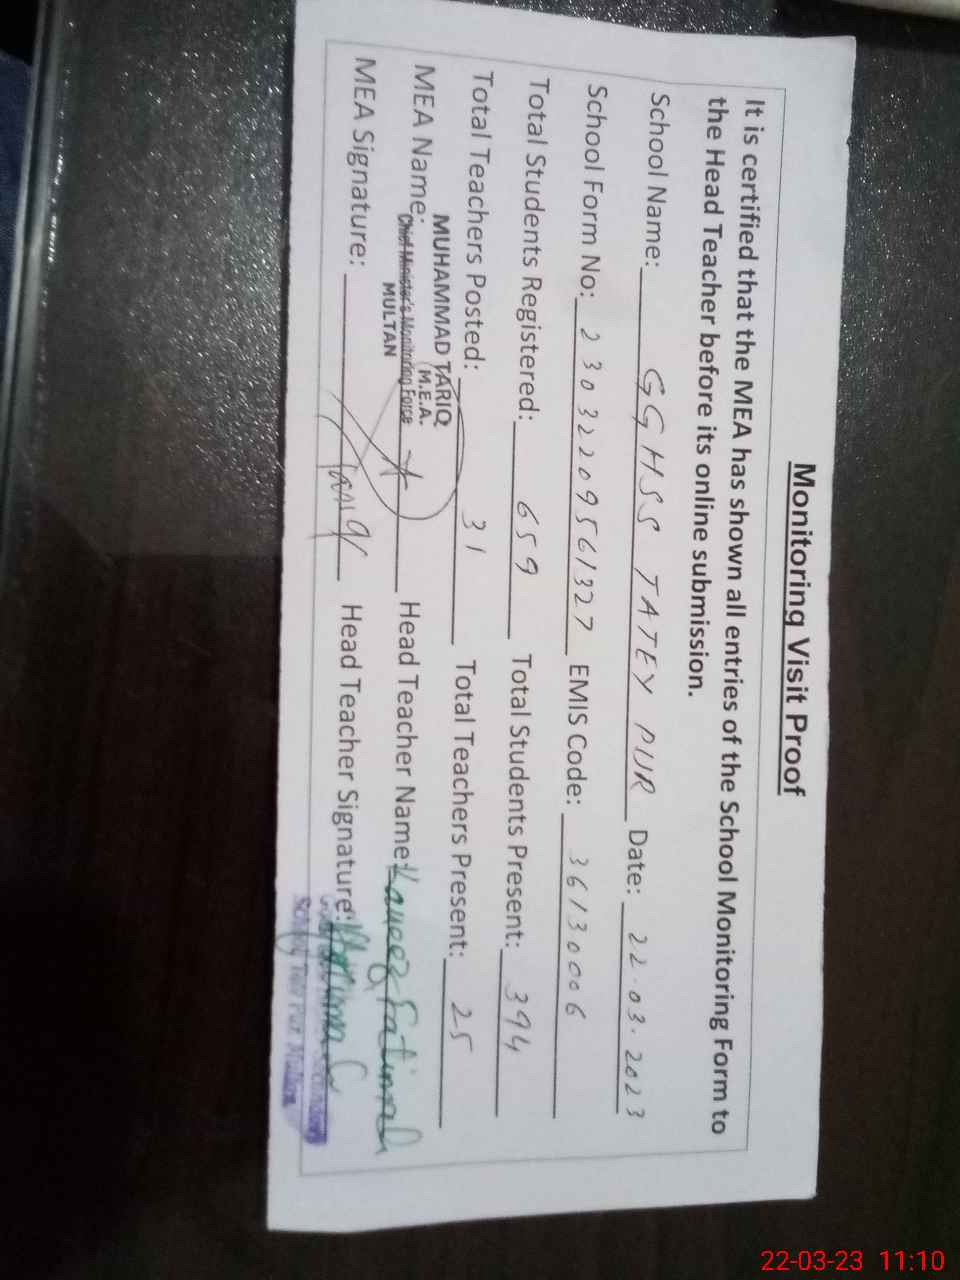 Monitoring Visit Proof
It is certified that the MEA has shown all entries of the School Monitoring Form to
the Head Teacher before its online submission.
School Name: GGHSS TATEY PUR Date: 22.03.2023
School Form No: 23032209561327 EMIS Code: 36130006
Total Students Registered: 659 Total Students Present: 394
Total Teachers Posted: 31 Total Teachers Present: 25
MUHAMMAD TARIQ
(M.E.A.
MEA Name: Head Teacher Name: Kaneez Fatima
Chief Minister's Monitoring Force
MULTAN
MEA Signature: Tariq Head Teacher Signature:
22-03-23 11:10